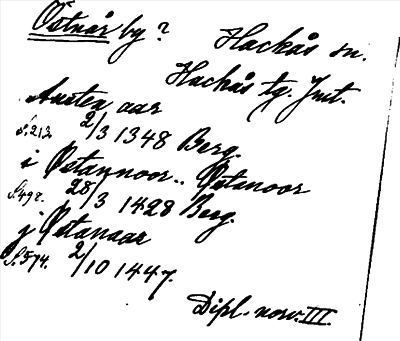 Östnår by?
Hackås sn.
Hackås tg. Jmt.
Austen aar
S.213. 2/3 1348 Berg.
i Østannoor.. Østanoor
S.498. 28/3 1428 Berg.
j Østanaar
S.574. 2/10 1447.
Dipl. norv. III.